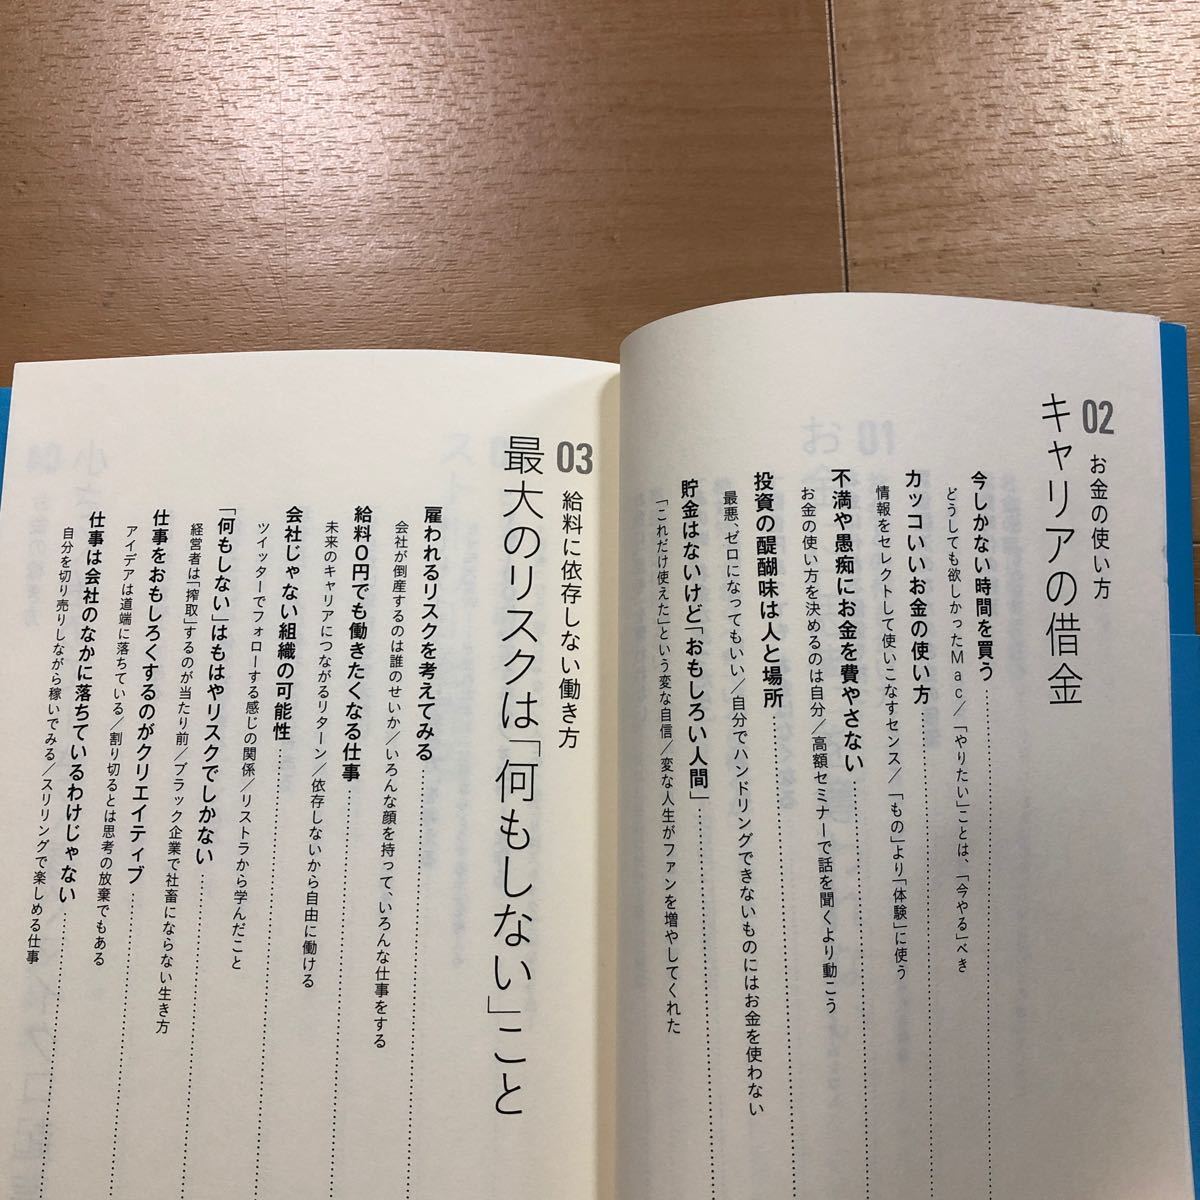 02 お金の使い方
キャリアの借金
今しかない時間を買う
どうしても欲しかったMac／「やりたい」ことは、「今やる」べき
カッコいいお金の使い方
情報をセレクトして使いこなすセンス／「もの」より「体験」に使う
不満や愚痴にお金を費やさない
お金の使い方を決めるのは自分／高額セミナーで話を聞くより動こう
投資の醍醐味は人と場所
最悪、ゼロになってもいい／自分でハンドリングできないものにはお金を使わない
貯金はないけど「おもしろい人間」
「これだけ使えた」という変な自信／変な人生がファンを増やしてくれた
03 給料に依存しない働き方
最大のリスクは「何もしない」こと
雇われるリスクを考えてみる
会社が倒産するのは誰のせいか／いろんな顔を持って、いろんな仕事をする
給料0円でも働きたくなる仕事
未来のキャリアにつながるリターン／依存しないから自由に働ける
会社じゃない組織の可能性
ツイッターでフォローする感じの関係／リストラから学んだこと
「何もしない」はもはやリスクでしかない
経営者は「搾取」するのが当たり前／ブラック企業で社畜にならない生き方
仕事をおもしろくするのがクリエイティブ
アイデアは道端に落ちている／割り切るとは思考の放棄でもある
仕事は会社のなかに落ちているわけじゃない
自分を切り売りしながら稼いでみる／スリリングで楽しめる仕事